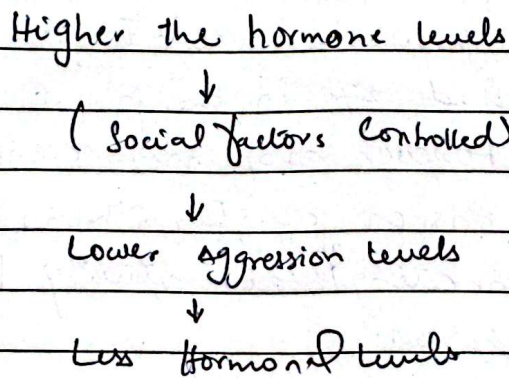 Higher the hormone levels
↓
(Social factors Controlled)
↓
Lower Aggression levels
↓
Less Hormonal levels